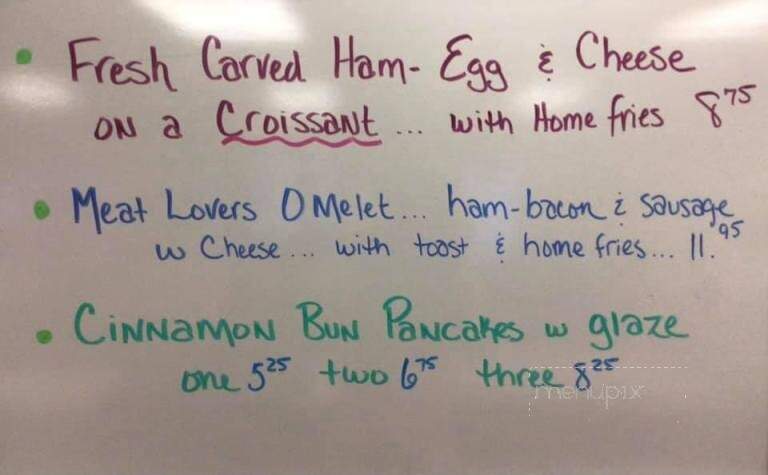 • Fresh Carved Ham- Egg & Cheese
ON a Croissant ... with Home fries 8 75
• Meat Lovers OMelet... ham-bacon & sausage
w Cheese... with toast & home fries... 11.95
• CINNAMON BUN PANCAKES w glaze
one 5 25 two 6 75 three 8 25
menupix